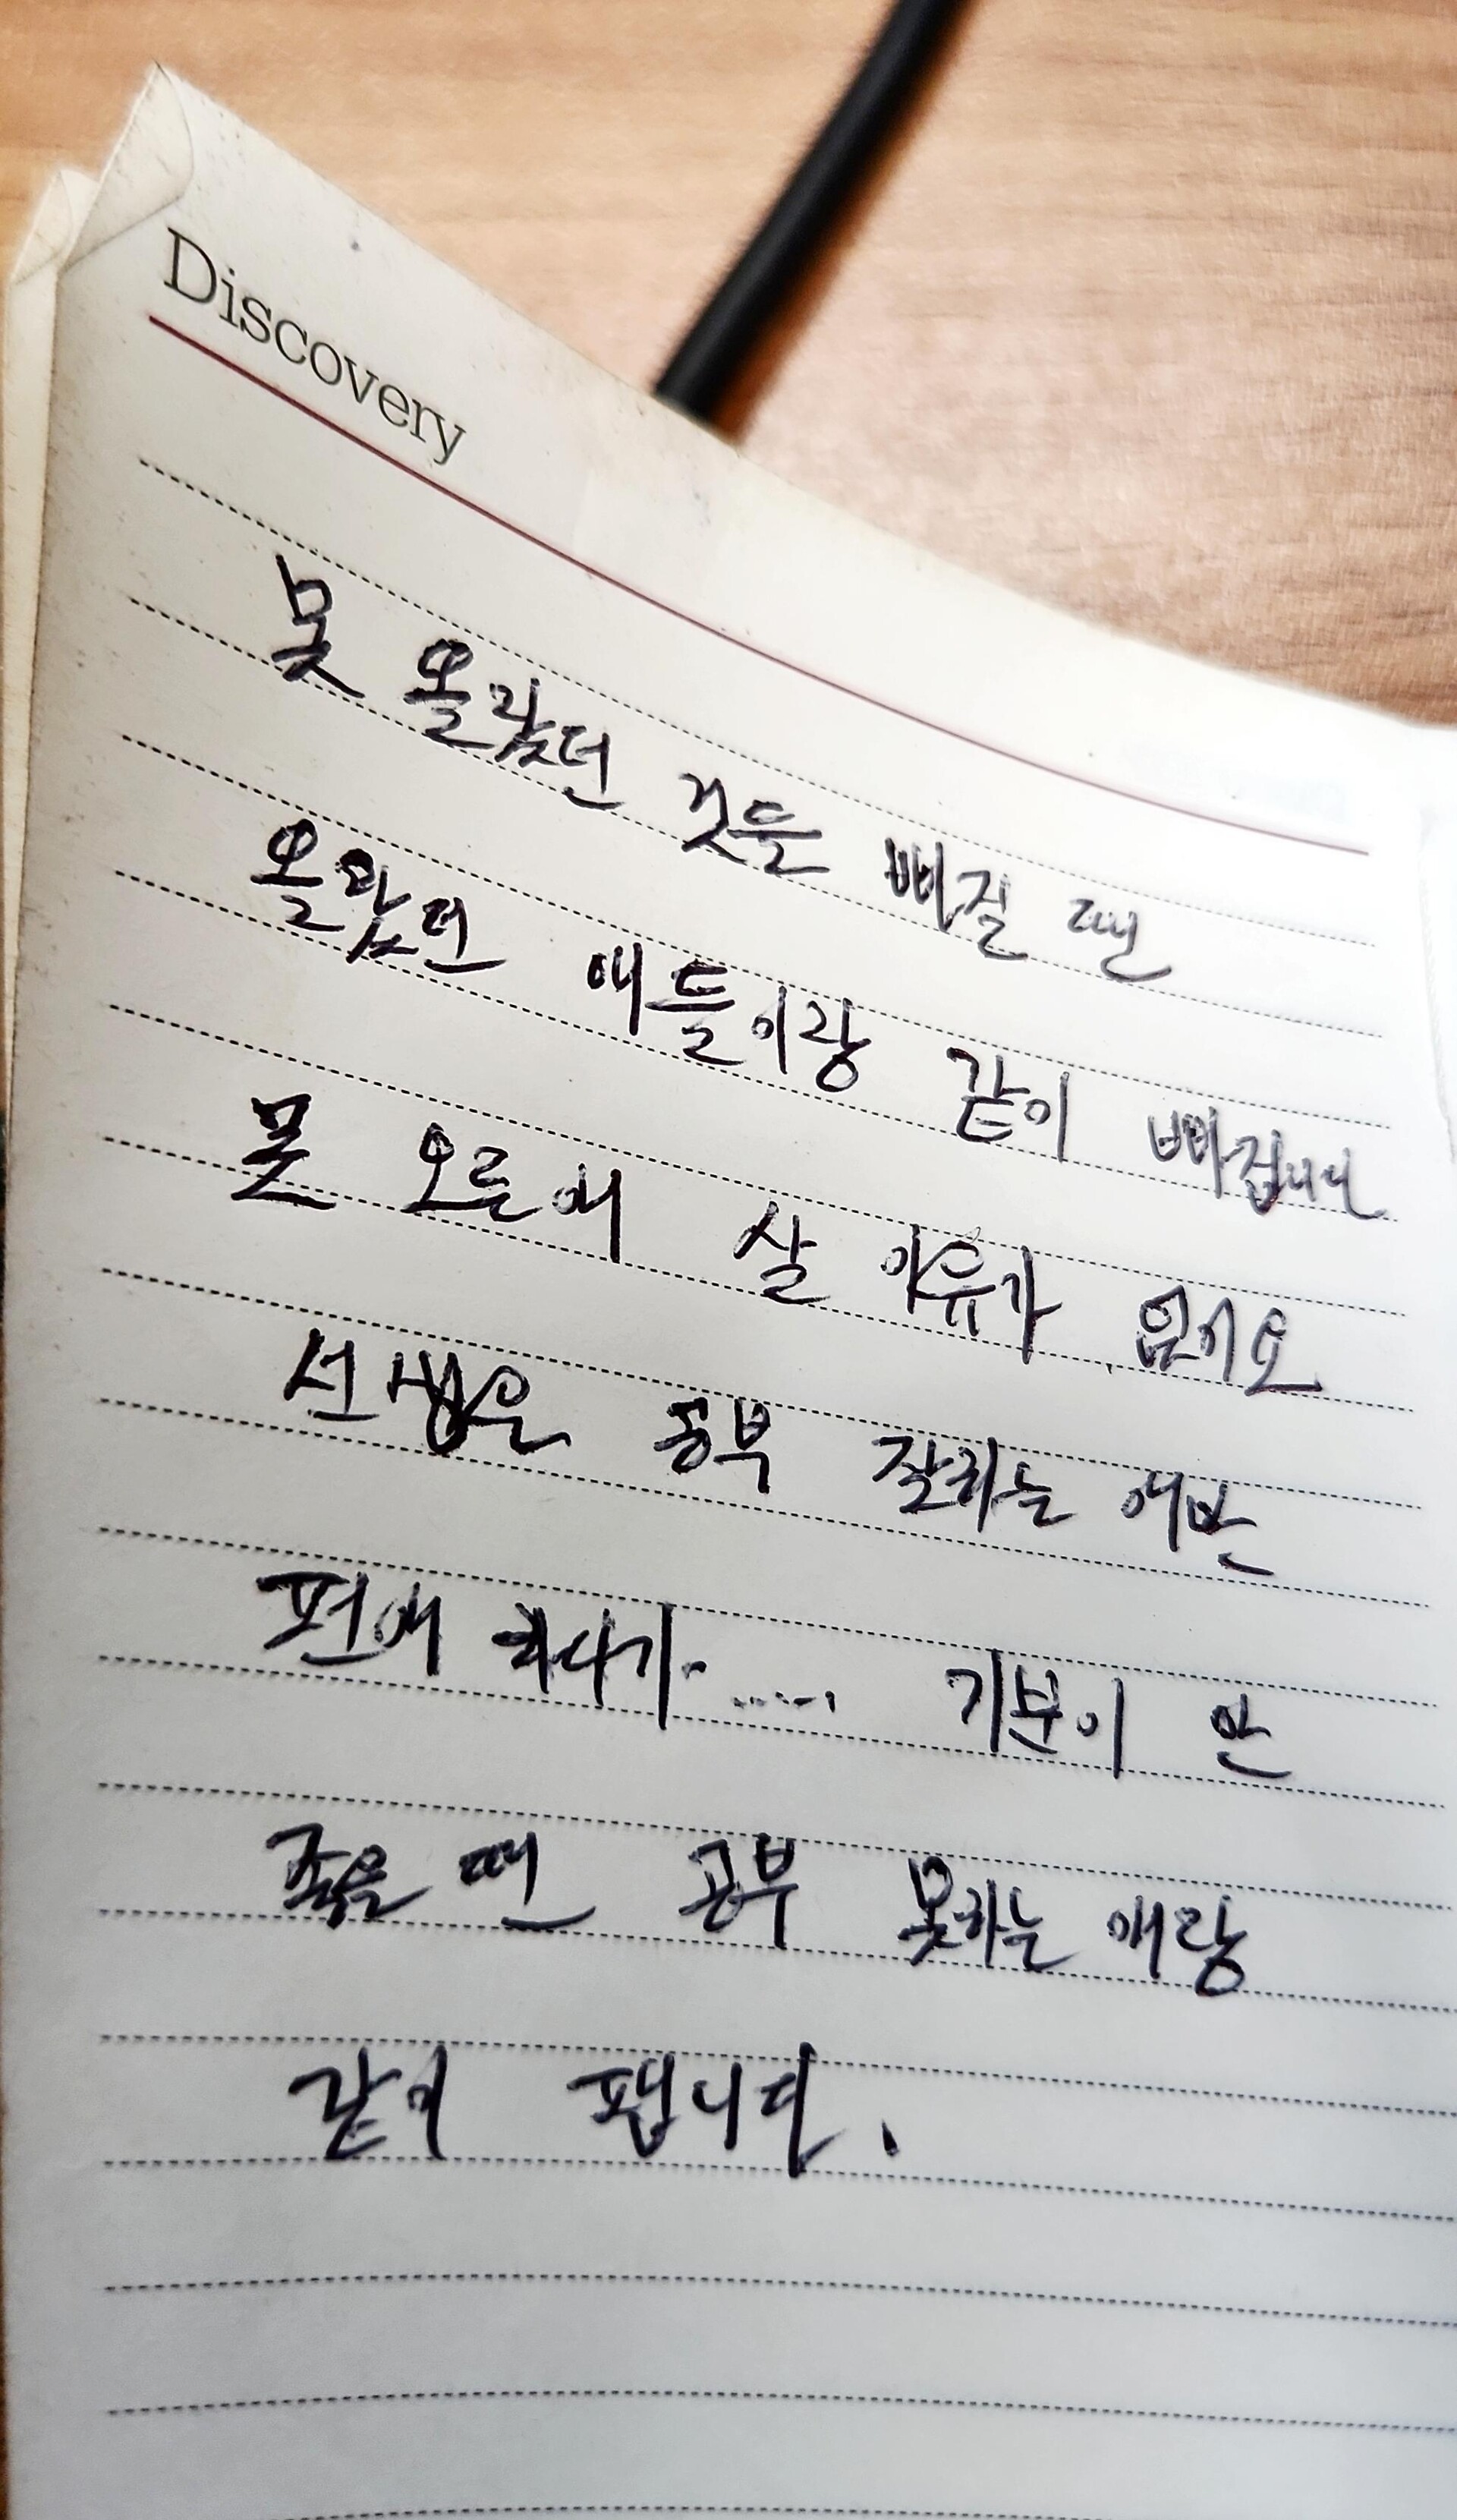 Discovery
못 올랐던 것들 빠질 땐
올랐던 애들이랑 같이 빠집니다
못 오른 애 살 이유가 없어요
선생은 공부 잘하는 애만
편애 하다가...... 기분이 안
좋을 땐 공부 못하는 애랑
같이 팹니다.